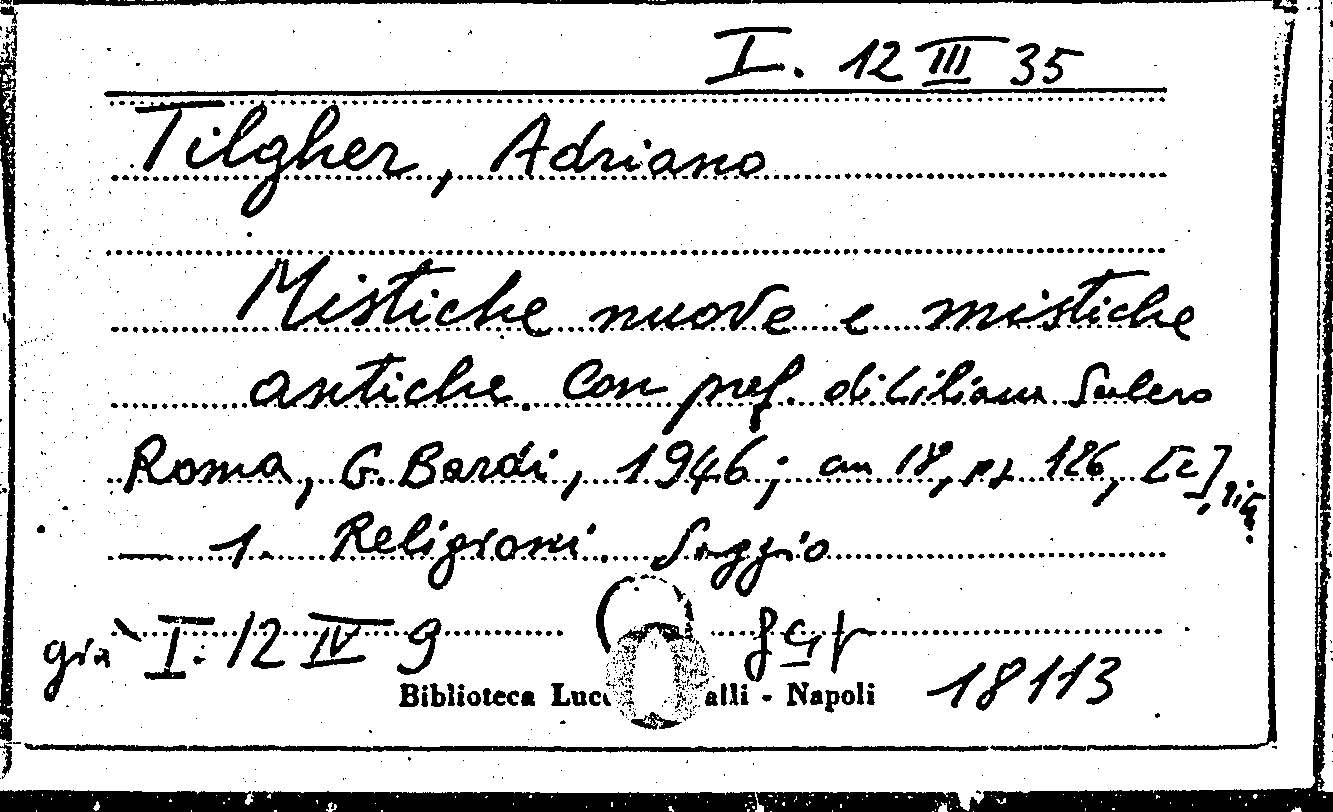 I. 12 III 35
Tilgher, Adriano
Mistiche nuove e mistiche
antiche. Con pref. di Liliana Scalero
Roma, G. Bardi, 1946; cm 18, pp 126, [2],
— 1. Religioni. Saggio
già I. 12 IV 9
Biblioteca Lucc alli - Napoli 18113